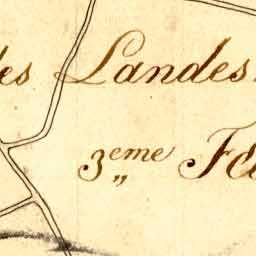 des Landes
3eme Fe